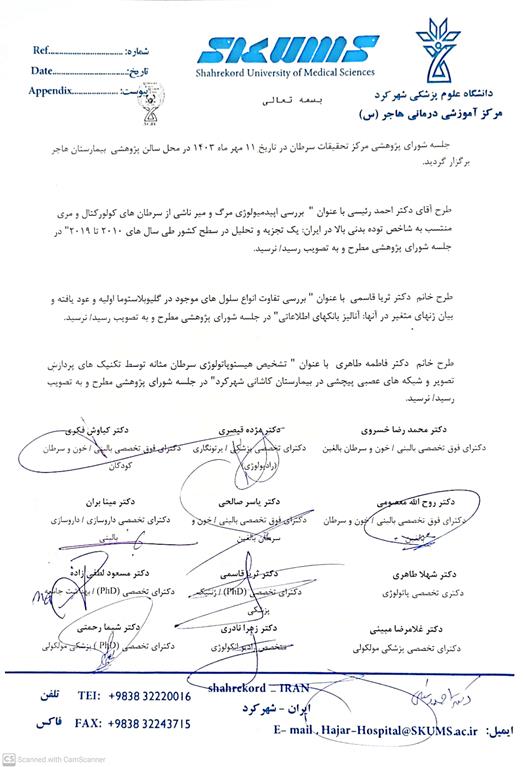 شماره: Ref.......................
تاریخ: Date.......................
پیوست: Appendix.......................
SKUMS
Shahrekord University of Medical Sciences
بسمه تعالی
دانشگاه علوم پزشکی شهرکرد
مرکز آموزشی درمانی هاجر (س)
جلسه شورای پژوهشی مرکز تحقیقات سرطان در تاریخ ۱۱ مهر ماه ۱۴۰۳ در محل سالن پژوهشی بیمارستان هاجر
برگزار گردید.
طرح آقای دکتر احمد رئیسی با عنوان " بررسی اپیدمیولوژی مرگ و میر ناشی از سرطان های کولورکتال و مری
منتسب به شاخص توده بدنی بالا در ایران: یک تجزیه و تحلیل در سطح کشور طی سال های ۲۰۱۰ تا ۲۰۱۹" در
جلسه شورای پژوهشی مطرح و به تصویب رسید/ نرسید.
طرح خانم دکتر ثریا قاسمی با عنوان " بررسی تفاوت انواع سلول های موجود در گلیوبلاستوما اولیه و عود یافته و
بیان ژنهای متغیر در آنها: آنالیز بانکهای اطلاعاتی" در جلسه شورای پژوهشی مطرح و به تصویب رسید/ نرسید.
طرح خانم دکتر فاطمه طاهری با عنوان " تشخیص هیستوپاتولوژی سرطان مثانه توسط تکنیک های پردازش
تصویر و شبکه های عصبی پیچشی در بیمارستان کاشانی شهرکرد" در جلسه شورای پژوهشی مطرح و به تصویب
رسید/ نرسید.
دکتر محمد رضا خسروی
دکترای فوق تخصصی بالینی / خون و سرطان بالغین
دکتر مژده قیصری
دکترای تخصصی پزشکی / پرتونگاری
(رادیولوژی)
دکتر کیاوش فکری
دکترای فوق تخصصی بالینی / خون و سرطان
کودکان
دکتر روح الله معصومی
دکترای فوق تخصصی بالینی / خون و سرطان
بالغین
دکتر یاسر صالحی
دکترای فوق تخصصی بالینی / خون و
سرطان بالغین
دکتر مینا بران
دکترای تخصصی داروسازی / داروسازی
بالینی
دکتر شهلا طاهری
دکتری تخصصی پاتولوژی
دکتر ثریا قاسمی
دکترای تخصصی (PhD) / ژنتیک
پزشکی
دکتر مسعود لطفی زاده
دکترای تخصصی (PhD) / بهداشت جامعه
دکتر غلامرضا مبینی
دکترای تخصصی پزشکی مولکولی
دکتر زهرا نادری
متخصص رادیوانکولوژی
دکتر شیما رحمتی
دکترای تخصصی (PhD) پزشکی مولکولی
تلفن TEl: +9838 32220016
فاکس FAX: +9838 32243715
shahrekord _ IRAN
ایران - شهرکرد
ایمیل: E- mail , Hajar-Hospital@SKUMS.ac.ir
CS Scanned with CamScanner